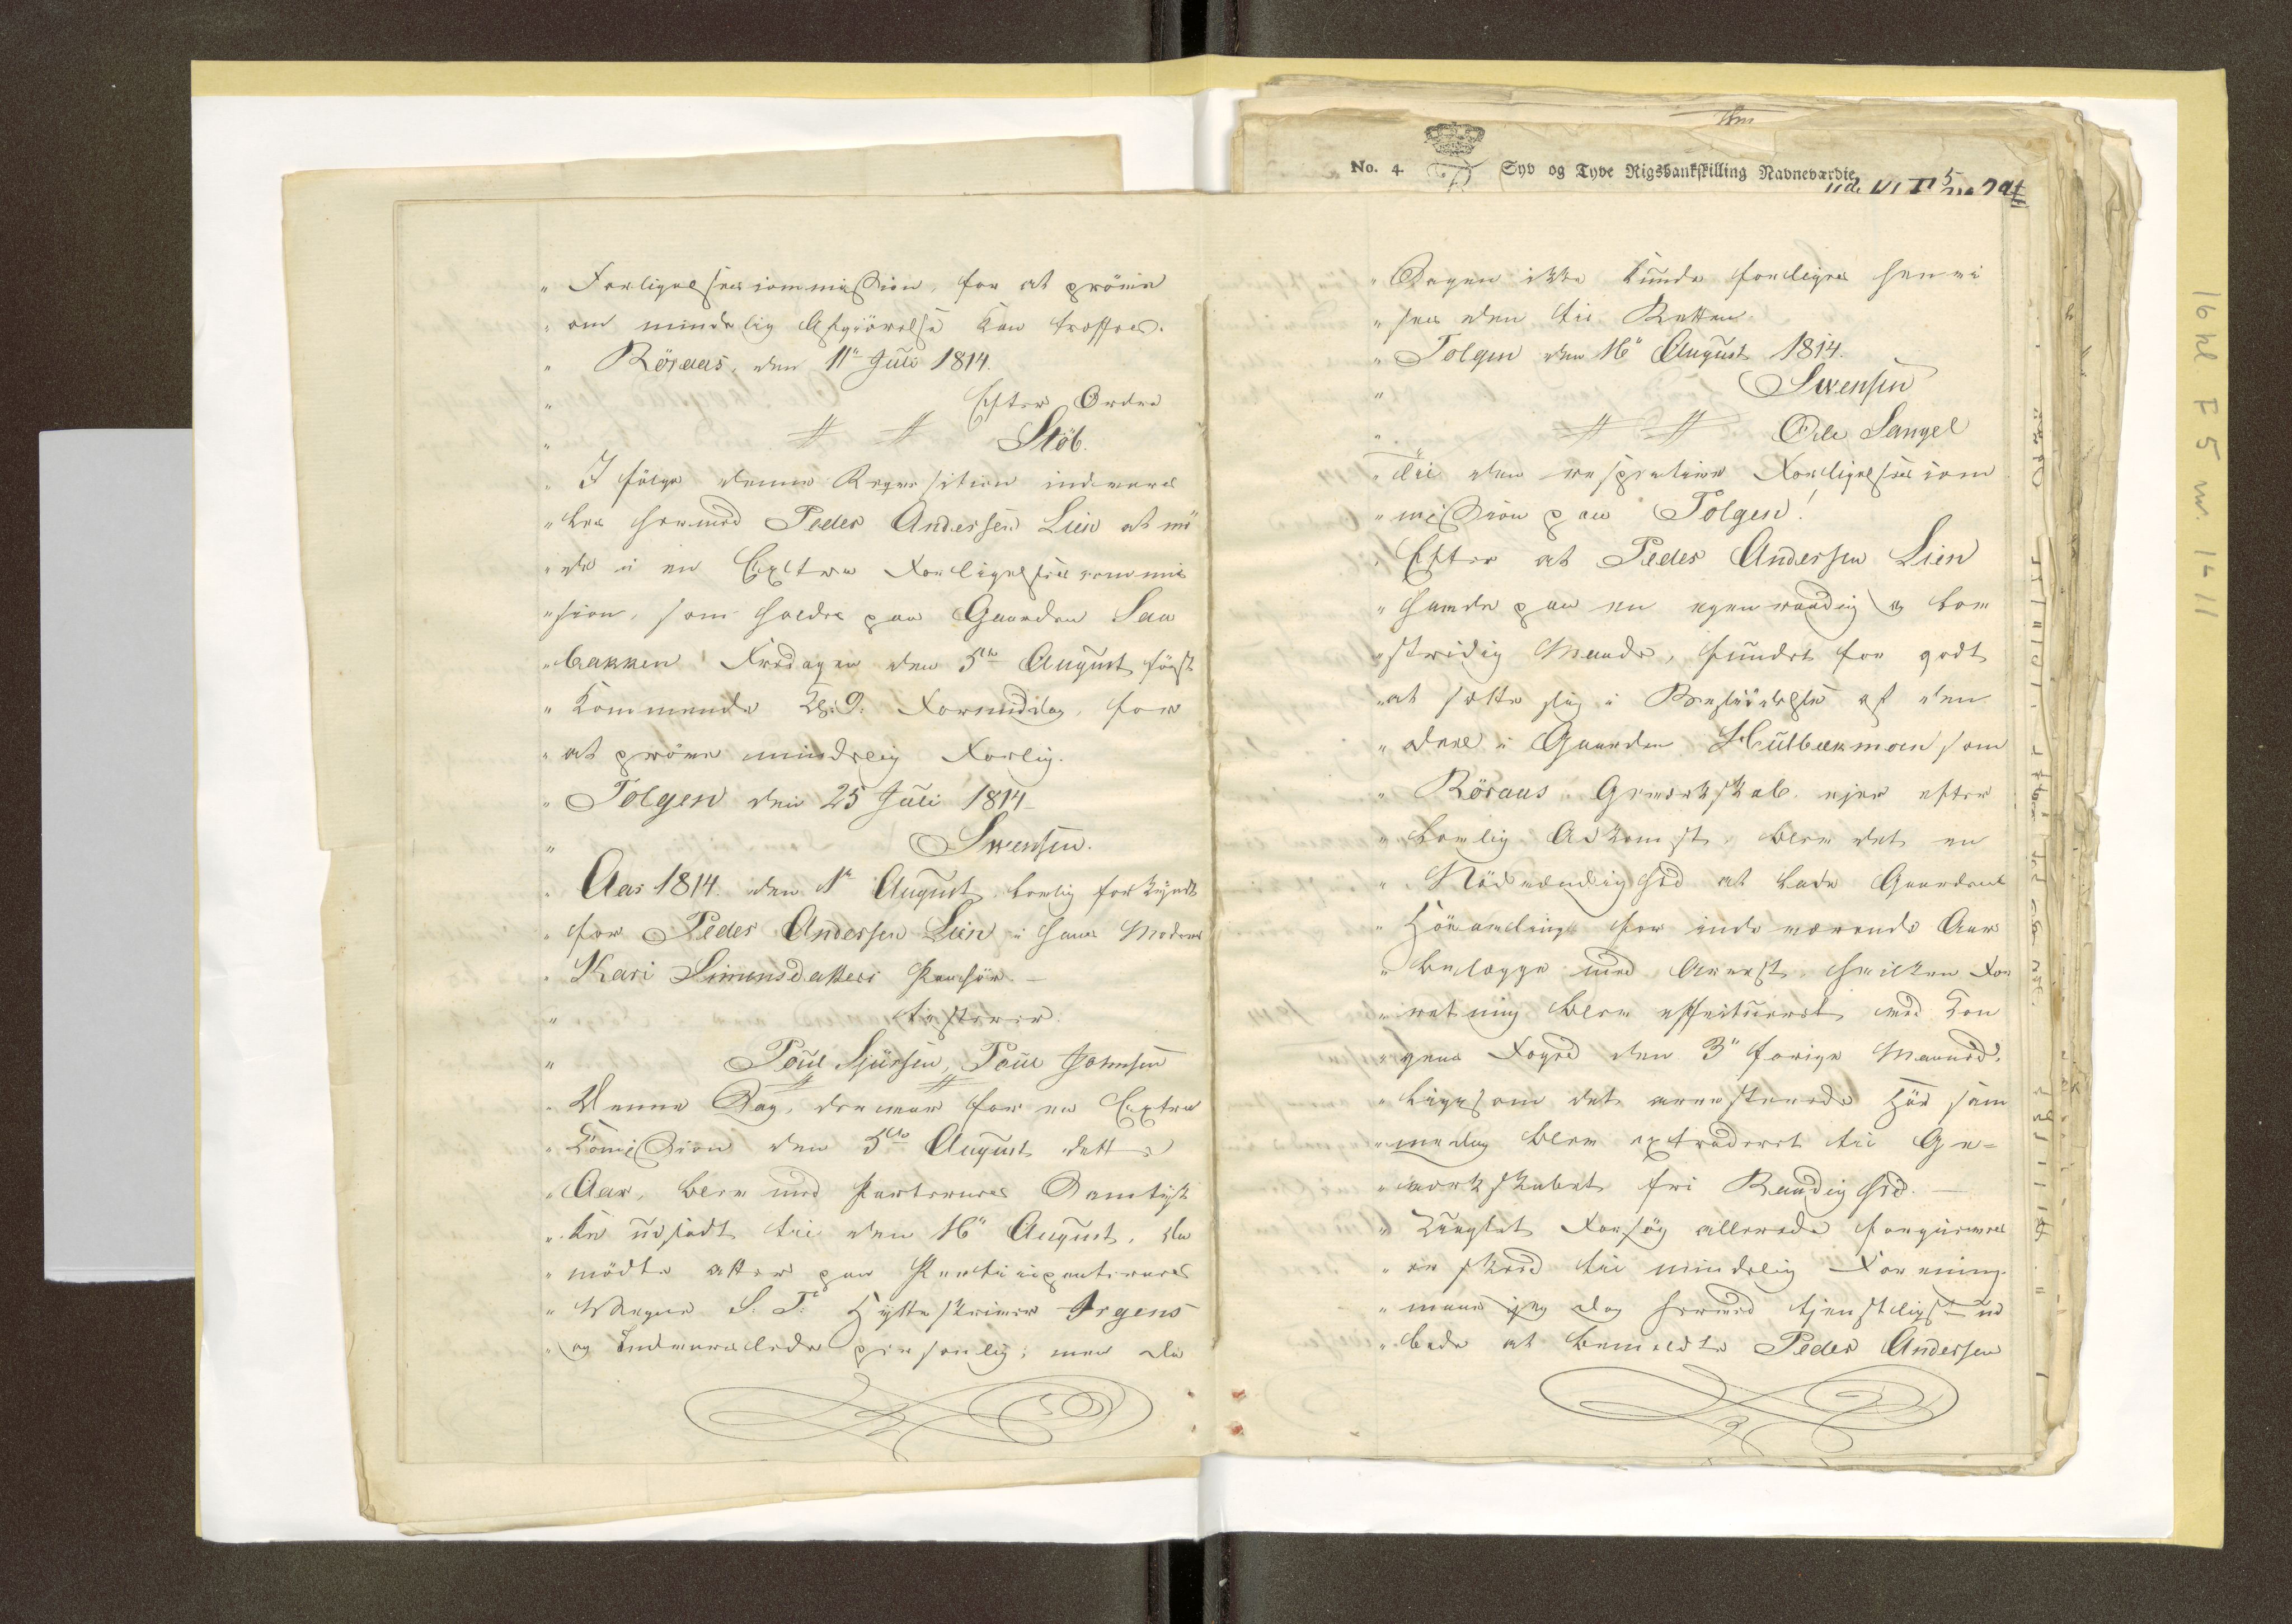 " Forligelsescommission, for at pröve
" om mindelig Afgiörelse kan træffes.
" Röraas, den 11te Juli 1814.
" Efter Ordre
" Stöb.
" I fölge denne Reqvisition indvars
" les hermed Peder Andersen Lien at mö
" de i en Extra Forligelses commis
" sion, som holdes paa Gaarden Laa
" bakken Fredagen den 5te August först
" kommende Kl: 9. Formiddag, for
" at pröve mindelig Forlig.
" Tolgen den 25 Juli 1814
" Swensen.
" Aar 1814. den 1te August lovlig forkyndt
" for Peder Andersen Lien i hans Moders
" Kari Simensdatters Paahör.
" testerer.
" Poul Sjursen, Poul Johnsen
" Denne Sag, der var for en Extra
" Comission den 5te August dette
" Aar, blev med Parternes Samtyk
" ke udsadt til den 16" August, da
" mödte atter paa Participanternes
" Vegne S. T. Hytteskriver Irgens
" og Indvarslede personlig; men da
No. 4. Syv og Tyve Rigsbankskilling Navneværdie
" Sagen ikke kunde forliges henvi
" ses den til Retten.
" Tolgen den 16" August 1814.
" Swensen
" Ole Langel
" Til den respective Forligelsescom
" mission paa Tolgen!
" Efter at Peder Andersen Lien
" havde paa en egenraadig og lov
" stridig Maade, fundet for godt
" at sætte sig i Besiddelse af den
" Deel i Gaarden Hulbækmoen som
" Röraas Grværkskab ejer efter
" lovlig Adkomst, blev det en
" Nödvendighed at lade Gaardens
" Höeavling for indeværende Aar
" belægge med Arrest, hvilken For
" retning blev effectueret ved Kon
" gens Foged den 3" forige Maaned,
" ligesom det arresterede Höe sam
" medag blev extraderet til Ge=
" værkskabet fri Raadighed. —
" Uagtet Forsög allerede forgieves
" er skeed til mindelig Forening
" maae jeg dog hermed tjenstligst ud
" bede at bemeldte Peder Andersen
16 hl F 5 nr. 1-11